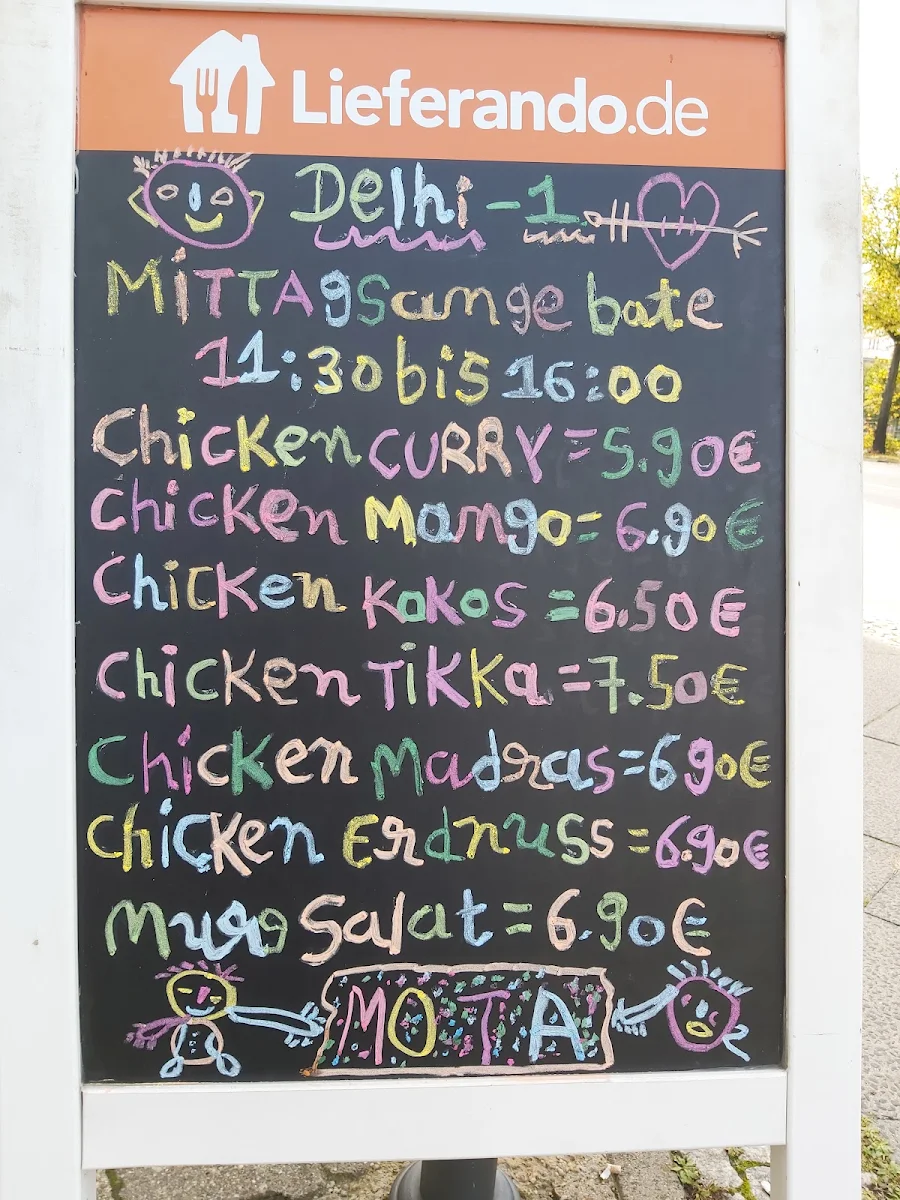 Lieferando.de
Delhi -1
MiTTAgsange bote
11:30 bis 16:00
Chicken CURRY = 5.90€
Chicken Mango = 6.90€
Chicken KoKos = 6.50€
Chicken TiKKa = 7.50€
Chicken Madras = 6 90€
Chicken Erdnuss = 6.90€
Salat = 6.90€
MOTA